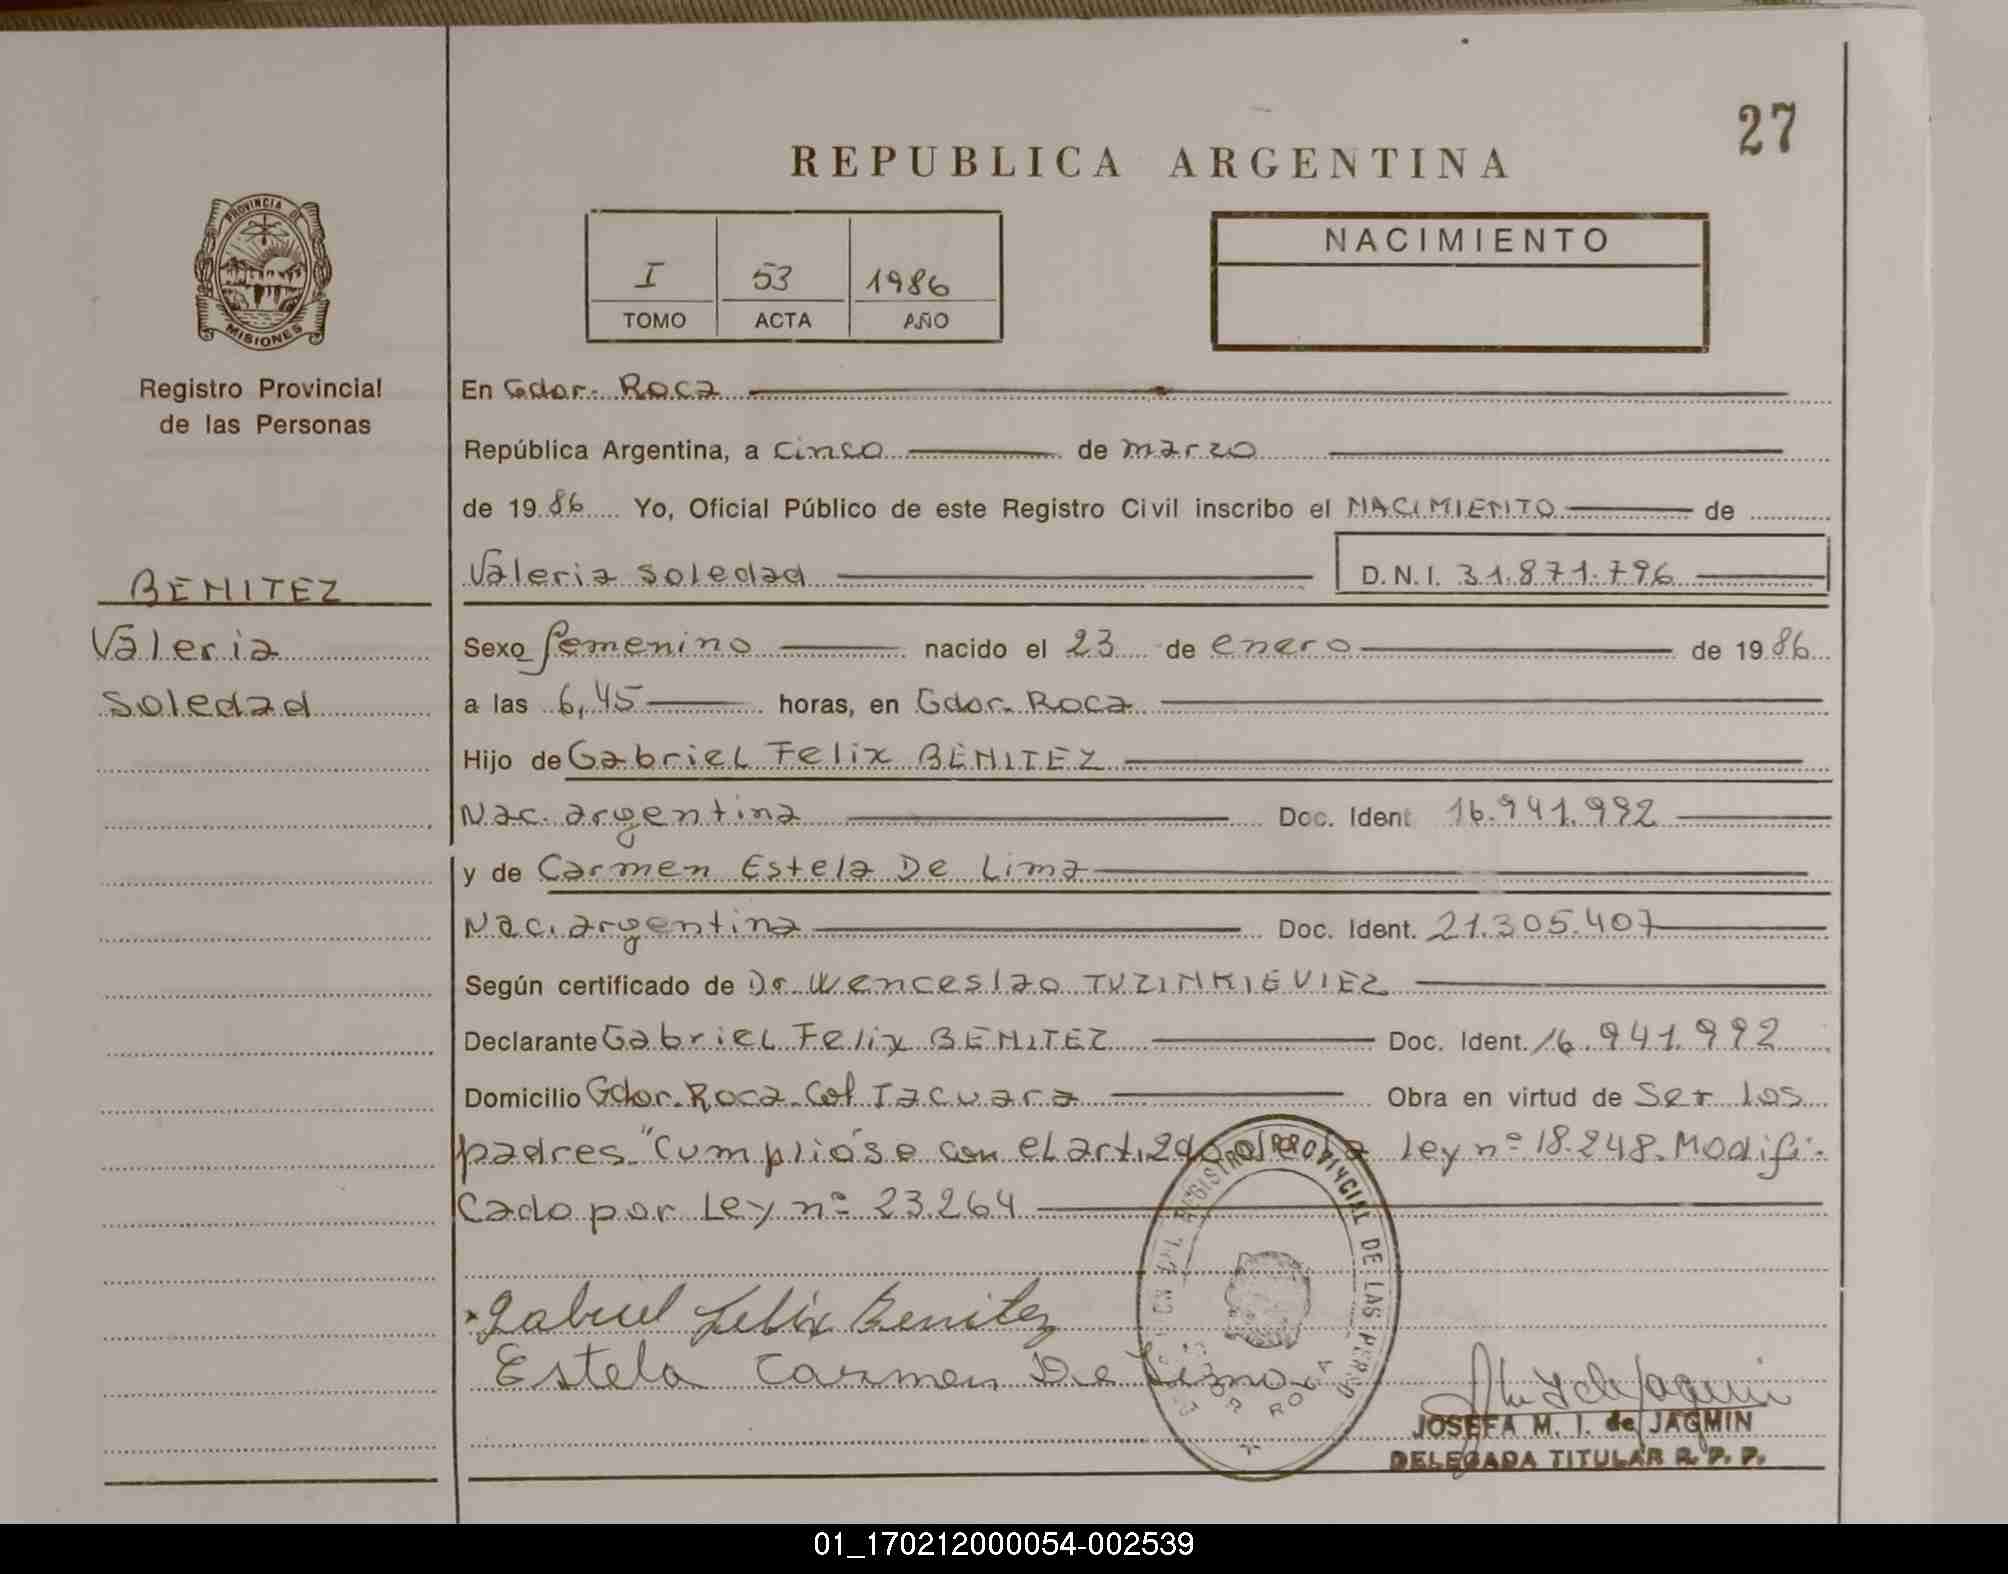 27
REPUBLICA ARGENTINA
PROVINCIA DE
MISIONES
Registro Provincial
de las Personas
BENITEZ
Valeria
Soledad
I 53 1986
TOMO ACTA AÑO
NACIMIENTO
En Gdor. Roca
República Argentina, a cinco de marzo
de 1986 Yo, Oficial Público de este Registro Civil inscribo el NACIMIENTO de
Valeria Soledad D.N.I. 31.871.796
Sexo femenino nacido el 23 de enero de 1986
a las 6,45 horas, en Gdor. Roca
Hijo de Gabriel Felix BENITEZ
Nac. argentina Doc. Ident 16.941.992
y de Carmen Estela De Lima
Nac. argentina Doc. Ident. 21.305.407
Según certificado de Dr. Wenceslao TUZINKIEVIEZ
Declarante Gabriel Felix BENITEZ Doc. Ident. 16.941.992
Domicilio Gdor. Roca. Col Tacuara Obra en virtud de Ser los
padres "Cumplióse con el art. 2do de la Ley nº 18.248. Modifi-
cado por Ley nº 23.264
REGISTRO PROVINCIAL DE LAS PERS
ROCA
Gabriel Felix Benitez
Estela Carmen De Lima
JOSEFA M. I. de JAGMIN
DELEGADA TITULAR R. P. P.
01_170212000054-002539